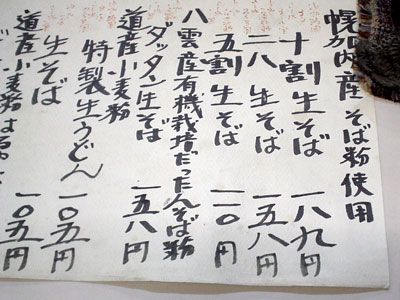 幌加内産そば粉使用
十割生そば 一八九円
二八生そば 一五八円
五割生そば 一一〇円
八雲産有機栽培だったんそば粉
ダッタン生そば 一五八円
道産小麦粉
特製生うどん 一〇五円
生そば 一〇五円
道産小麦粉